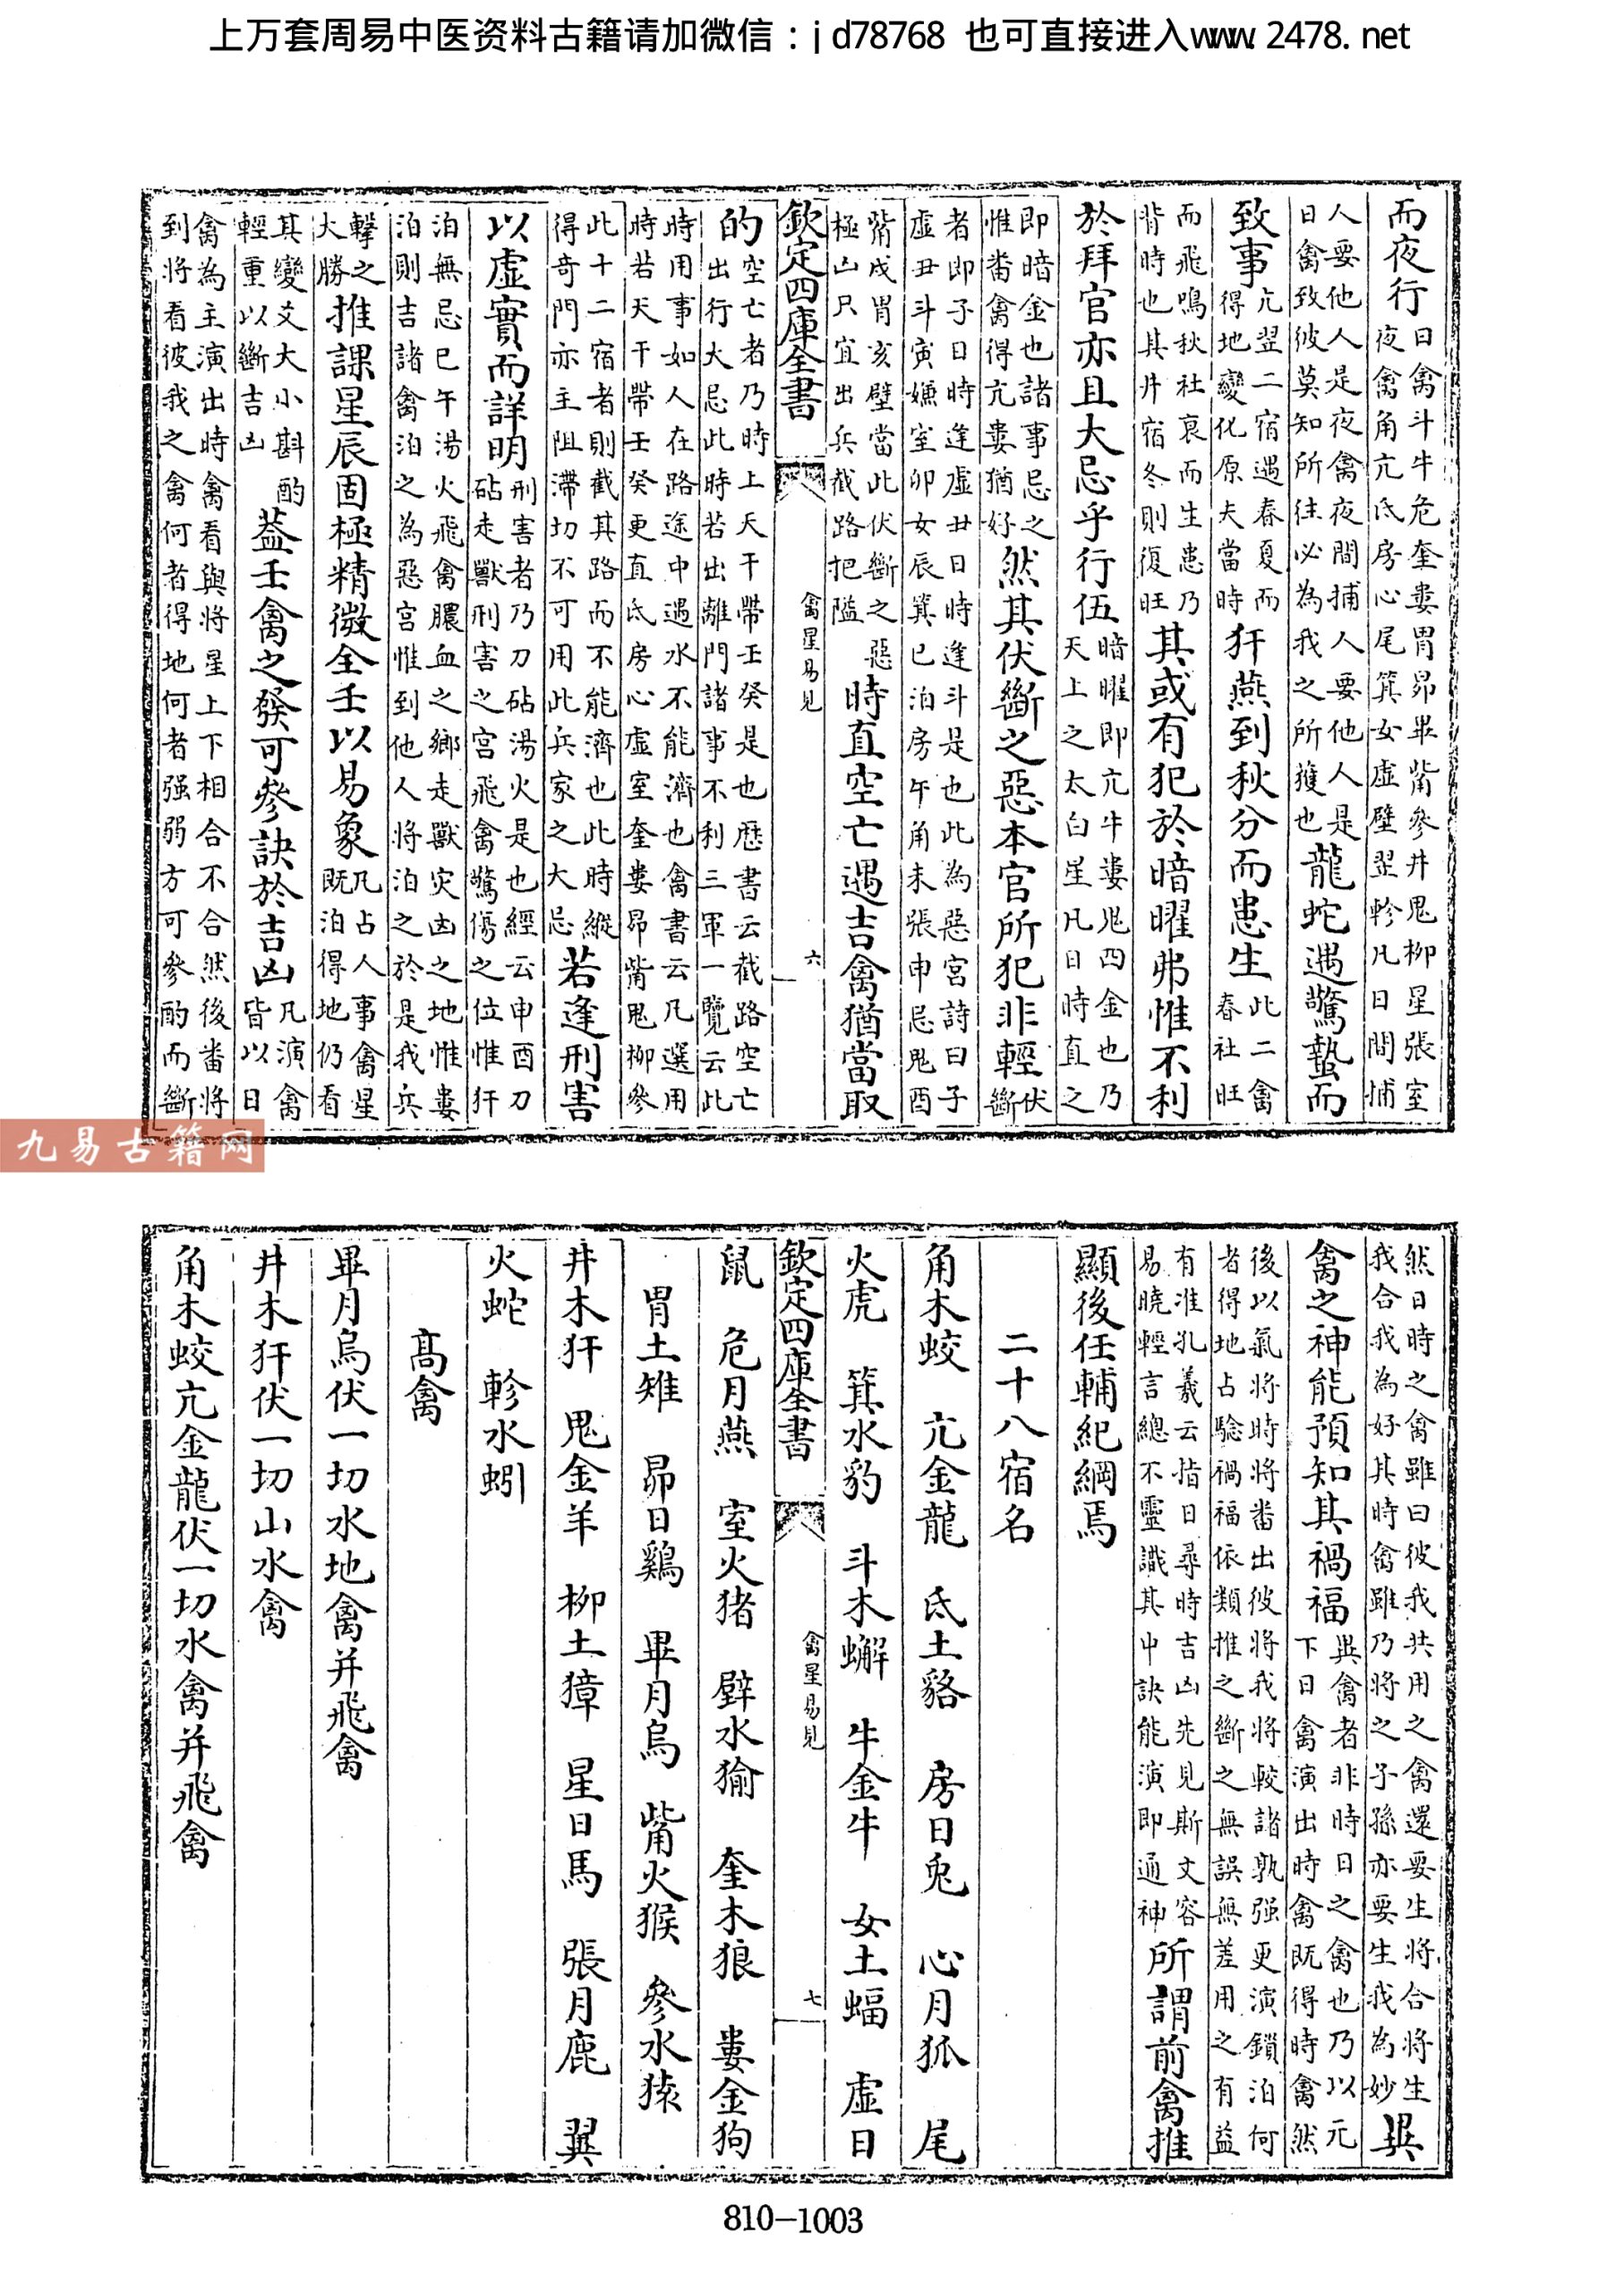 上万套周易中医资料古籍请加微信：jd78768 也可直接进入www.2478.net
而夜行日禽斗牛危奎婁胃昴畢觜參井鬼柳星張室
夜禽角亢氐房心尾箕女虛壁翌軫凡日間捕
人要他人是夜禽夜間捕人要他人是
日禽致彼莫知所往必為我之所獲也龍蛇遇驚蟄而
致事亢翌二宿遇春夏而
得地變化原夫當時犴燕到秋分而患生此二禽
春社旺
而飛鳴秋社衰而生患乃
背時也其井宿冬則復旺其或有犯於暗曜弗惟不利
於拜官亦且大忌乎行伍暗曜即亢牛婁鬼四金也乃
天上之太白星凡日時直之
即暗金也諸事忌之
惟畨禽得亢婁猶好然其伏斷之惡本官所犯非輕伏
斷
者即子日時逢虛丑日時逢斗是也此為惡宮詩曰子
虛丑斗寅嫌室卯女辰箕巳泊房午角未張申忌鬼酉
觜戌胃亥壁當此伏斷之惡
極凶只宜出兵截路把隘時直空亡遇吉禽猶當取
欽定四庫全書
禽星易見
六
的空亡者乃時上天干帶壬癸是也歷書云截路空亡
出行大忌此時若出離門諸事不利三軍一覽云此
時用事如人在路途中遇水不能濟也禽書云凡選用
時若天干帶壬癸更直氐房心虛室奎婁昴觜鬼柳參
此十二宿者則截其路而不能濟也此時縱
得奇門亦主阻滯切不可用此兵家之大忌若逢刑害
以虛實而詳明刑害者乃刀砧湯火是也經云申酉刀
砧走獸刑害之宮飛禽驚傷之位惟犴
泊無忌巳午湯火飛禽膿血之鄉走獸灾凶之地惟婁
泊則吉諸禽泊之為惡宮惟到他人將泊之於是我兵
擊之
大勝推課星辰固極精微全壬以易象凡占人事禽星
既泊得地仍看
其變爻大小斟酌
輕重以斷吉凶葢壬禽之發可參訣於吉凶凡演禽
皆以日
禽為主演出時禽看與將星上下相合不合然後畨將
到將看彼我之禽何者得地何者强弱方可參酌而斷
九易古籍网
然日時之禽雖曰彼我共用之禽還要生將合將生
我合我為好其時禽雖乃將之子孫亦要生我為妙與
禽之神能預知其禍福與禽者非時日之禽也乃以元
下日禽演出時禽既得時禽然
後以氣將時將畨出彼將我將較諸孰强更演鎖泊何
者得地占驗禍福依類推之斷之無誤無差用之有益
有准孔義云指日尋時吉凶先見斯文容
易曉輕言總不靈識其中訣能演即通神所謂前禽推
顯後任輔紀綱焉
二十八宿名
角木蛟　亢金龍　氐土貉　房日兎　心月狐　尾
火虎　箕水豹　斗木蠏　牛金牛　女土蝠　虛日
欽定四庫全書
禽星易見
七
鼠　危月燕　室火猪　壁水㺄　奎木狼　婁金狗
胃土雉　昴日鷄　畢月烏　觜火猴　參水猿
井木犴　鬼金羊　柳土獐　星日馬　張月鹿　翼
火蛇　軫水蚓
髙禽
畢月烏伏一切水地禽并飛禽
井木犴伏一切山水禽
角木蛟亢金龍伏一切水禽并飛禽
810-1003